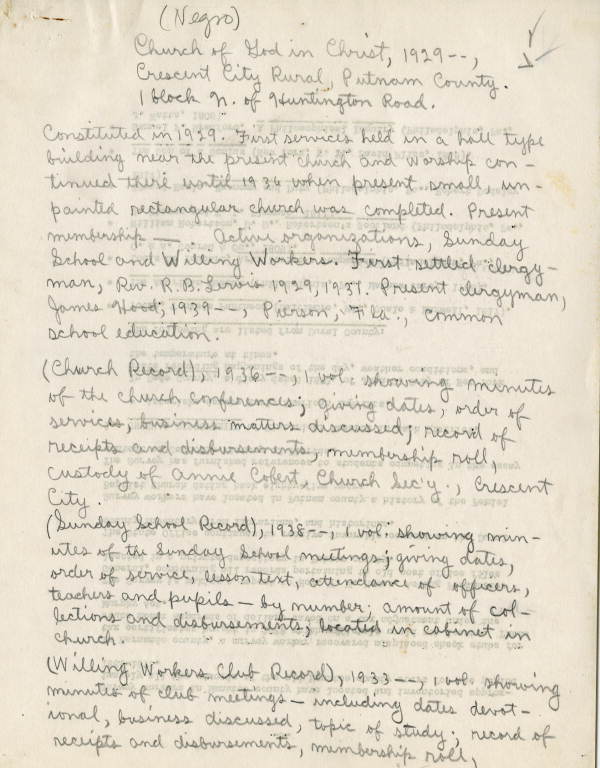 (Negro)
Church of God in Christ, 1929--,
Crescent City Rural, Putnam County.
1 block N. of Huntington Road.
Constituted in 1929. First services held in a hall type
building near the present church and worship con-
tinued there until 1936 when present small, un-
painted rectangular church was completed. Present
membership — Active organizations, Sunday
School and Willing Workers. First settled clergy-
man, Rev. R.B. Lewis 1929, 1937. Present clergyman,
James Hood, 1939--, Pierson, Fla., common
school education.
(Church Record), 1936--, 1 vol. showing minutes
of the church conferences; giving dates, order of
services, business matters discussed; record of
receipts and disbursements, membership roll,
custody of Annie Cobert, Church Sec'y., Crescent
City.
(Sunday School Record), 1938--, 1 vol. showing min-
utes of the Sunday School meetings; giving dates,
order of service, lesson text, attendance of officers,
teachers and pupils — by number; amount of col-
lections and disbursements; located in cabinet in
church.
(Willing Workers Club Record), 1933--, 1 vol. showing
minutes of club meetings — including dates devot-
ional, business discussed, topic of study; record of
receipts and disbursements, membership roll,